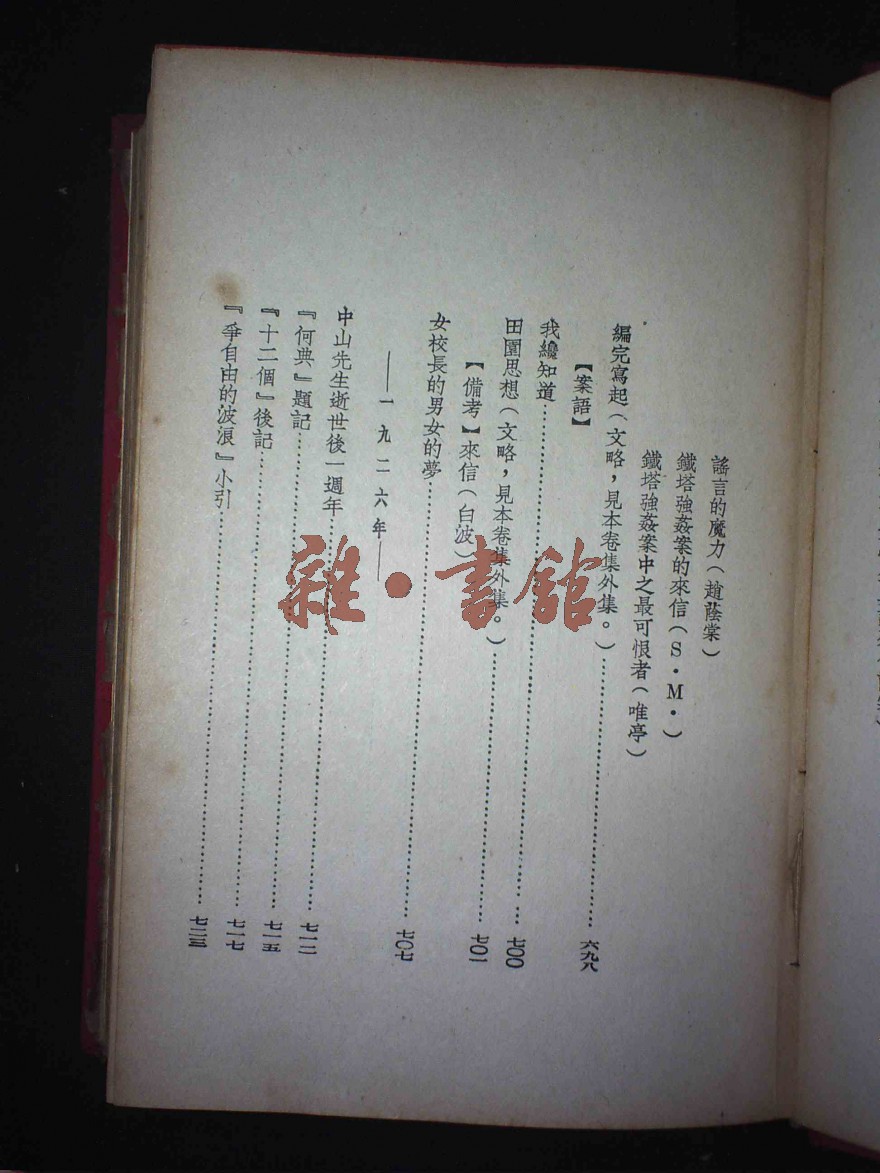 謠言的魔力(趙蔭棠)
鐵塔強姦案的來信(S・M・)
鐵塔強姦案中之最可恨者(唯亭)
編完寫起(文略,見本卷集外集。)……六九八
【案語】
我纔知道……七〇〇
田園思想(文略,見本卷集外集。)……七〇一
【備考】來信(白波)
女校長的男女的夢……七〇七
——一九二六年——
中山先生逝世後一週年……七一二
『何典』題記……七一五
『十二個』後記……七一七
『爭自由的波浪』小引……七二三
雜・書館